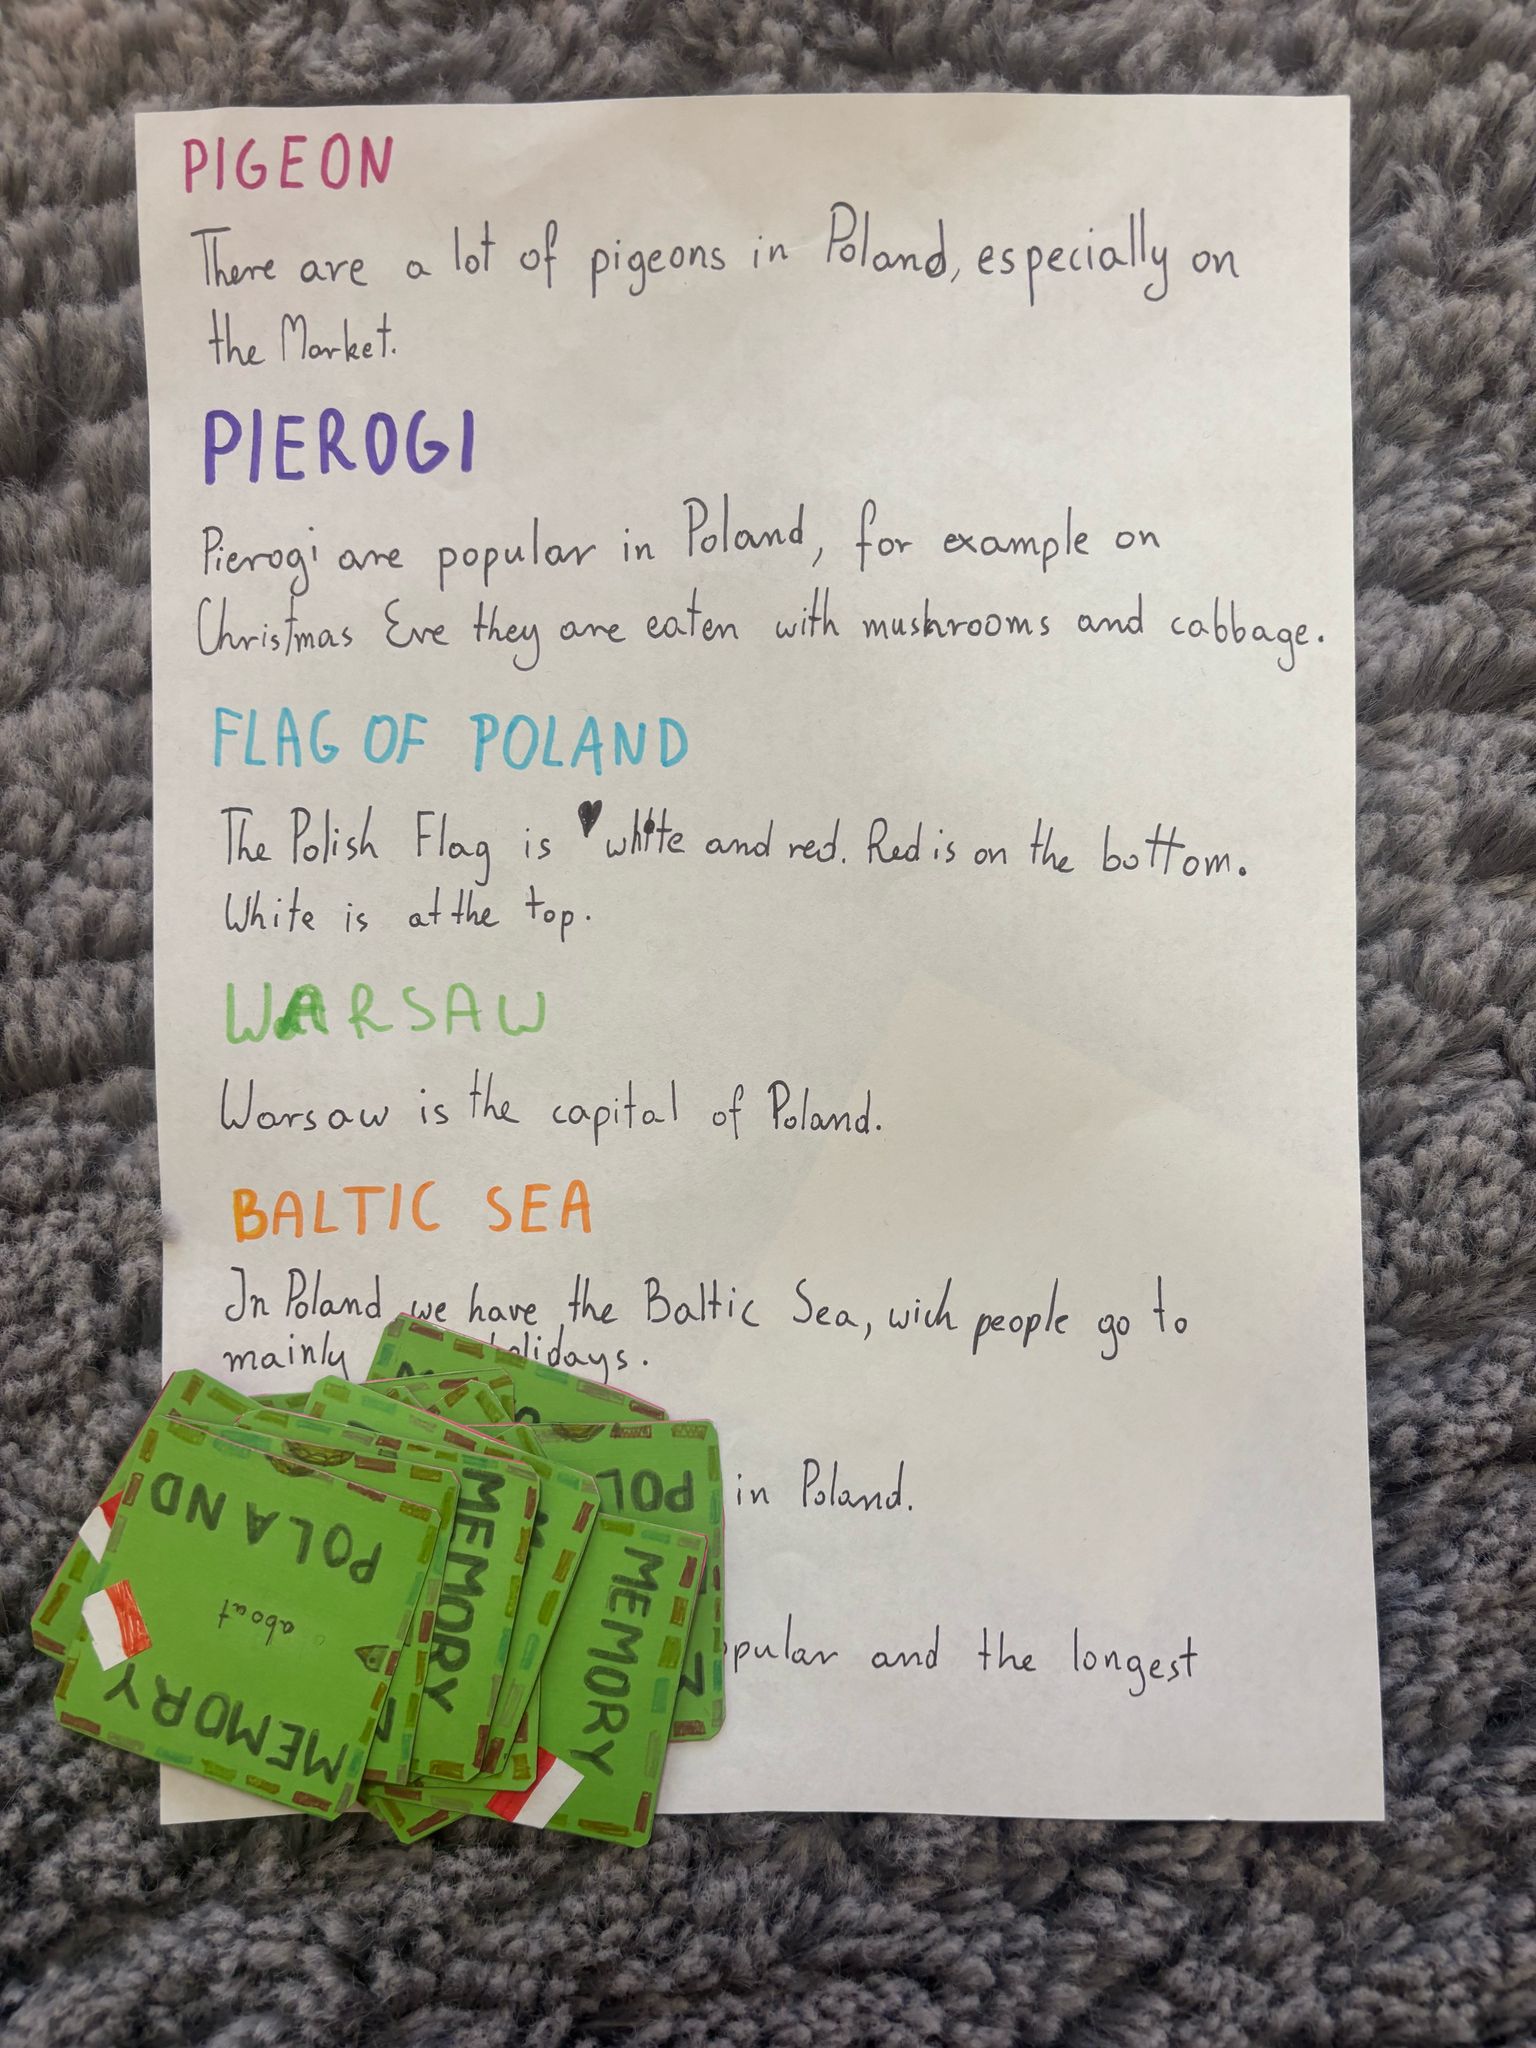 PIGEON
There are a lot of pigeons in Poland, especially on
the Market.
PIEROGI
Pierogi are popular in Poland, for example on
Christmas Eve they are eaten with mushrooms and cabbage.
FLAG OF POLAND
The Polish Flag is white and red. Red is on the bottom.
White is at the top.
WARSAW
Warsaw is the capital of Poland.
BALTIC SEA
In Poland we have the Baltic Sea, wich people go to
mainly
in Poland.
and the longest
MEMORY
about
POLAND
MEMORY
MEMORY